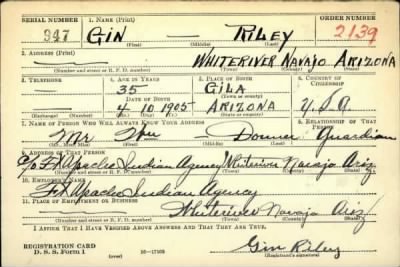 SERIAL NUMBER 1. NAME (Print) ORDER NUMBER
347 GIN — RILEY 2139
(First) (Middle) (Last)
2. ADDRESS (Print)
— WHITERIVER NAVAJO ARIZONA
(Number and street or R. F. D. number) (Town) (County) (State)
3. TELEPHONE 4. AGE IN YEARS 5. PLACE OF BIRTH 6. COUNTRY OF CITIZENSHIP
— 35 GILA
DATE OF BIRTH (Town or county)
4 10 1905 ARIZONA U.S.A
(Exchange) (Number) (Mo.) (Day) (Yr.) (State or country)
7. NAME OF PERSON WHO WILL ALWAYS KNOW YOUR ADDRESS
Mr. Wm Donner Guardian
(Mr., Mrs., Miss) (First) (Middle) (Last) (Relationship)
8. ADDRESS OF THAT PERSON
c/o Ft Apache Indian Agency Whiteriver Navajo Ariz
(Number and street or R. F. D. number) (Town) (County) (State)
10. EMPLOYER'S NAME
Ft Apache Indian Agency
11. PLACE OF EMPLOYMENT OR BUSINESS
Whiteriver Navajo Ariz
(Number and street or R. F. D. number) (Town) (County) (State)
I AFFIRM THAT I HAVE VERIFIED ABOVE ANSWERS AND THAT THEY ARE TRUE.
REGISTRATION CARD
D. S. S. Form 1 (over) 16—17105 Gin Riley
(Registrant's signature)